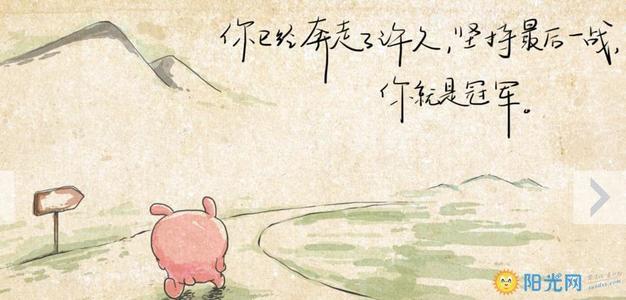 你已经奔走了许久，坚持最后一战，
你就是冠军。
阳光网